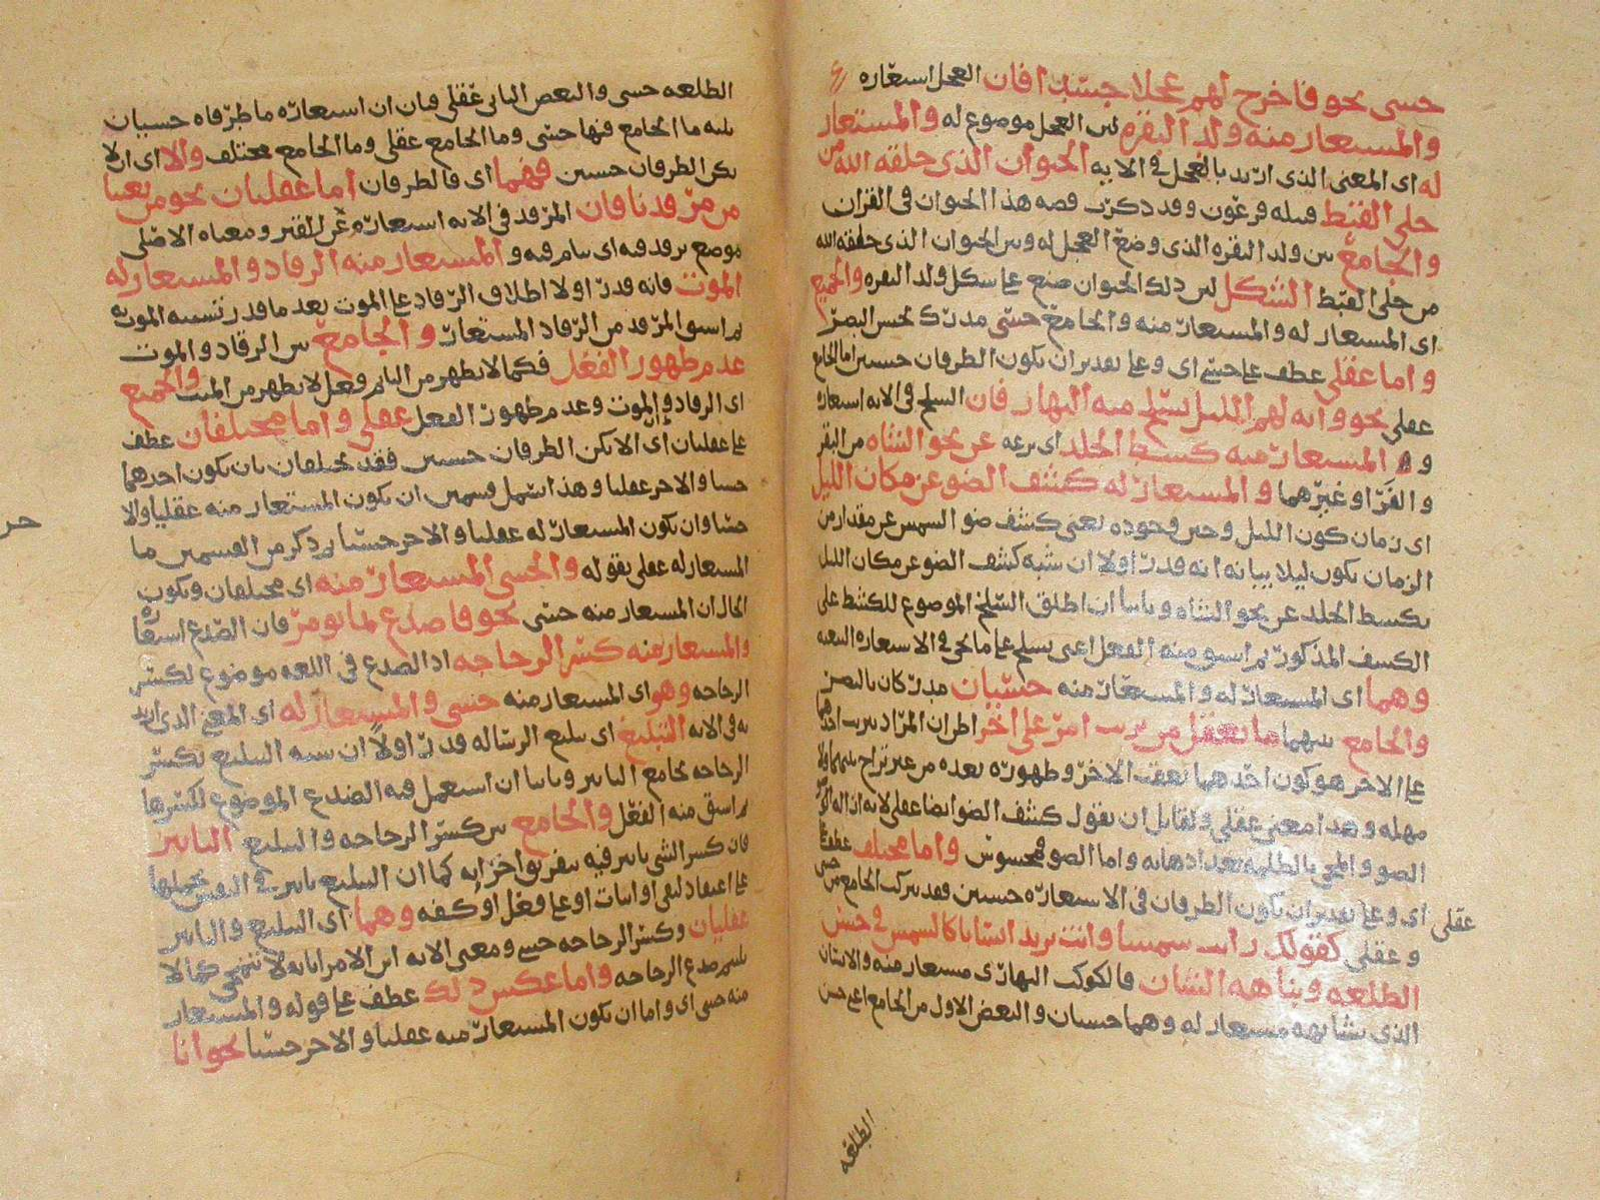 حسى نحو فاخرج لهم عجلا جسدا فان العجل استعاره
والمستعار منه ولد البقره لان العجل موضوع له والمستعار
له اى المعنى الذى اريد بالعجل فى الايه الحيوان الذى خلقه الله من
حلى القبط قبيله فرعون وقد ذكرت قصه هذا الحيوان فى القران
والجامع بين ولد البقره الذى وضع العجل له وبين الحيوان الذى خلقه الله
من حلى القبط الشكل لان ذلك الحيوان صنع على شكل ولد البقره والجميع
اى المستعار له والمستعار منه والجامع حسى مدرك بحس البصر
واما عقلى عطف على حسى اى وعلى تقدير ان يكون الطرفان حسيين اما الجامع
عقلى نحو وايه لهم الليل نسلخ منه النهار فان السلخ فى الايه استعاره
و المستعار منه كسط الجلد اى نزعه عن نحو الشاه من البقر
والفرا وغيرهما والمستعار له كشف الضو عن مكان الليل
اى زمان كون الليل وحين وجوده يعنى كشف ضو الشمس عن مقدار من
الزمان يكون ليلا بيانه انه قدر اولا ان شبه كشف الضو عن مكان الليل
بكسط الجلد عن نحو الشاه وثانيا ان اطلق السلخ الموضوع للكشط على
الكشف المذكور ثم اشتق منه الفعل اعنى نسلخ على ما نحى فى الاستعاره التبعيه
وهما اى المستعار له والمستعار منه حسيان مدركان بالبصر
والجامع بينهما ما يعقل من ترتب امر على اخر اطران المراد بترتب احدهما
على الاخر هو كون احدهما يعقب الاخر وظهوره بعده من غير تراخ بينهما ولا
مهله وهذا معنى عقلى ولقايل ان يقول كشف الضو ايضا عقلى لانه ازاله
الضو والمجى بالظلمه بعد اذهابه واما الضو فمحسوس واما مختلف عطف على
عقلى اى وعلى تقدير ان يكون الطرفان فى الاستعاره حسيين فقد يتركب الجامع من حسى
وعقلى كقولك رايت شمسا وانت تريد انسانا كالشمس فى حسن
الطلعه ونباهه الشان فالكوكب النهارى مستعار منه والانسان
الذى يشابهه مستعار له وهما حسيان والبعض الاول من الجامع اعنى حسن
الطلعه
الطلعه حسى والبعض الثانى عقلى فان ان استعاره ما طرفاه حسيان
ثلثه ما الجامع فيها حسى وما الجامع عقلى وما الجامع مختلف والا اى ان لا
يكن الطرفان حسيين فهما اى فالطرفان اما عقليان نحو من بعثنا
من مرقدنا فان المرقد فى الايه استعاره عن القبر ومعناه الاصلى
موضع يرقد فيه اى ينام فيه والمستعار منه الرقاد والمستعار له
الموت فانه قدر اولا اطلاق الرقاد على الموت بعد ما قدر تشبيه الموت به
ثم اشتق المرقد من الرقاد المستعار والجامع بين الرقاد والموت
عدم ظهور الفعل فكما لا يظهر من النايم فعل لا يظهر من الميت والجميع
اى الرقاد والموت وعدم ظهور الفعل عقلى واما مختلفان عطف
على عقليان اى ان لا يكن الطرفان حسيين فقد يختلفان بان يكون احدهما
حسيا والاخر عقليا وهذا اشتمل قسمين ان يكون المستعار منه عقليا والا
حسيا وان يكون المستعار له عقليا والاخر حسيا ثم ذكر من القسمين ما
المستعار له عقلى بقوله والحسى المستعار منه اى مختلفان ويكون
الحال ان المستعار منه حسى نحو فاصدع بما تومر فان الصدع استعاره
والمستعار منه كسر الزجاجه اذ الصدع فى اللغه موضوع لكسر
الزجاجه وهو اى المستعار منه حسى والمستعار له اى المعنى الذى اريد
به فى الايه التبليغ اى تبليغ الرساله قدر اولا ان شبه التبليغ بكسر
الزجاجه بجامع التاثير وثانيا ان استعمل فيه الصدع الموضوع لكسرها
ثم اشتق منه الفعل والجامع بين كسر الزجاجه والتبليغ التاثير
فان كسر الشى تاثير فيه بتفريق اجزايه كما ان التبليغ تاثير فى النفس بحملها
على اعتقاد لنفى او اثبات او على فعل او كفه وهما اى التبليغ والتاثير
عقليان وكسر الزجاجه حسى ومعنى الايه ابن الامر ابانه لا تنمحى كما لا
يلتيم صدع الزجاجه واما عكس ذلك عطف على قوله والمستعار
منه حسى اى واما ان يكون المستعار منه عقليا والاخر حسيا نحو انا